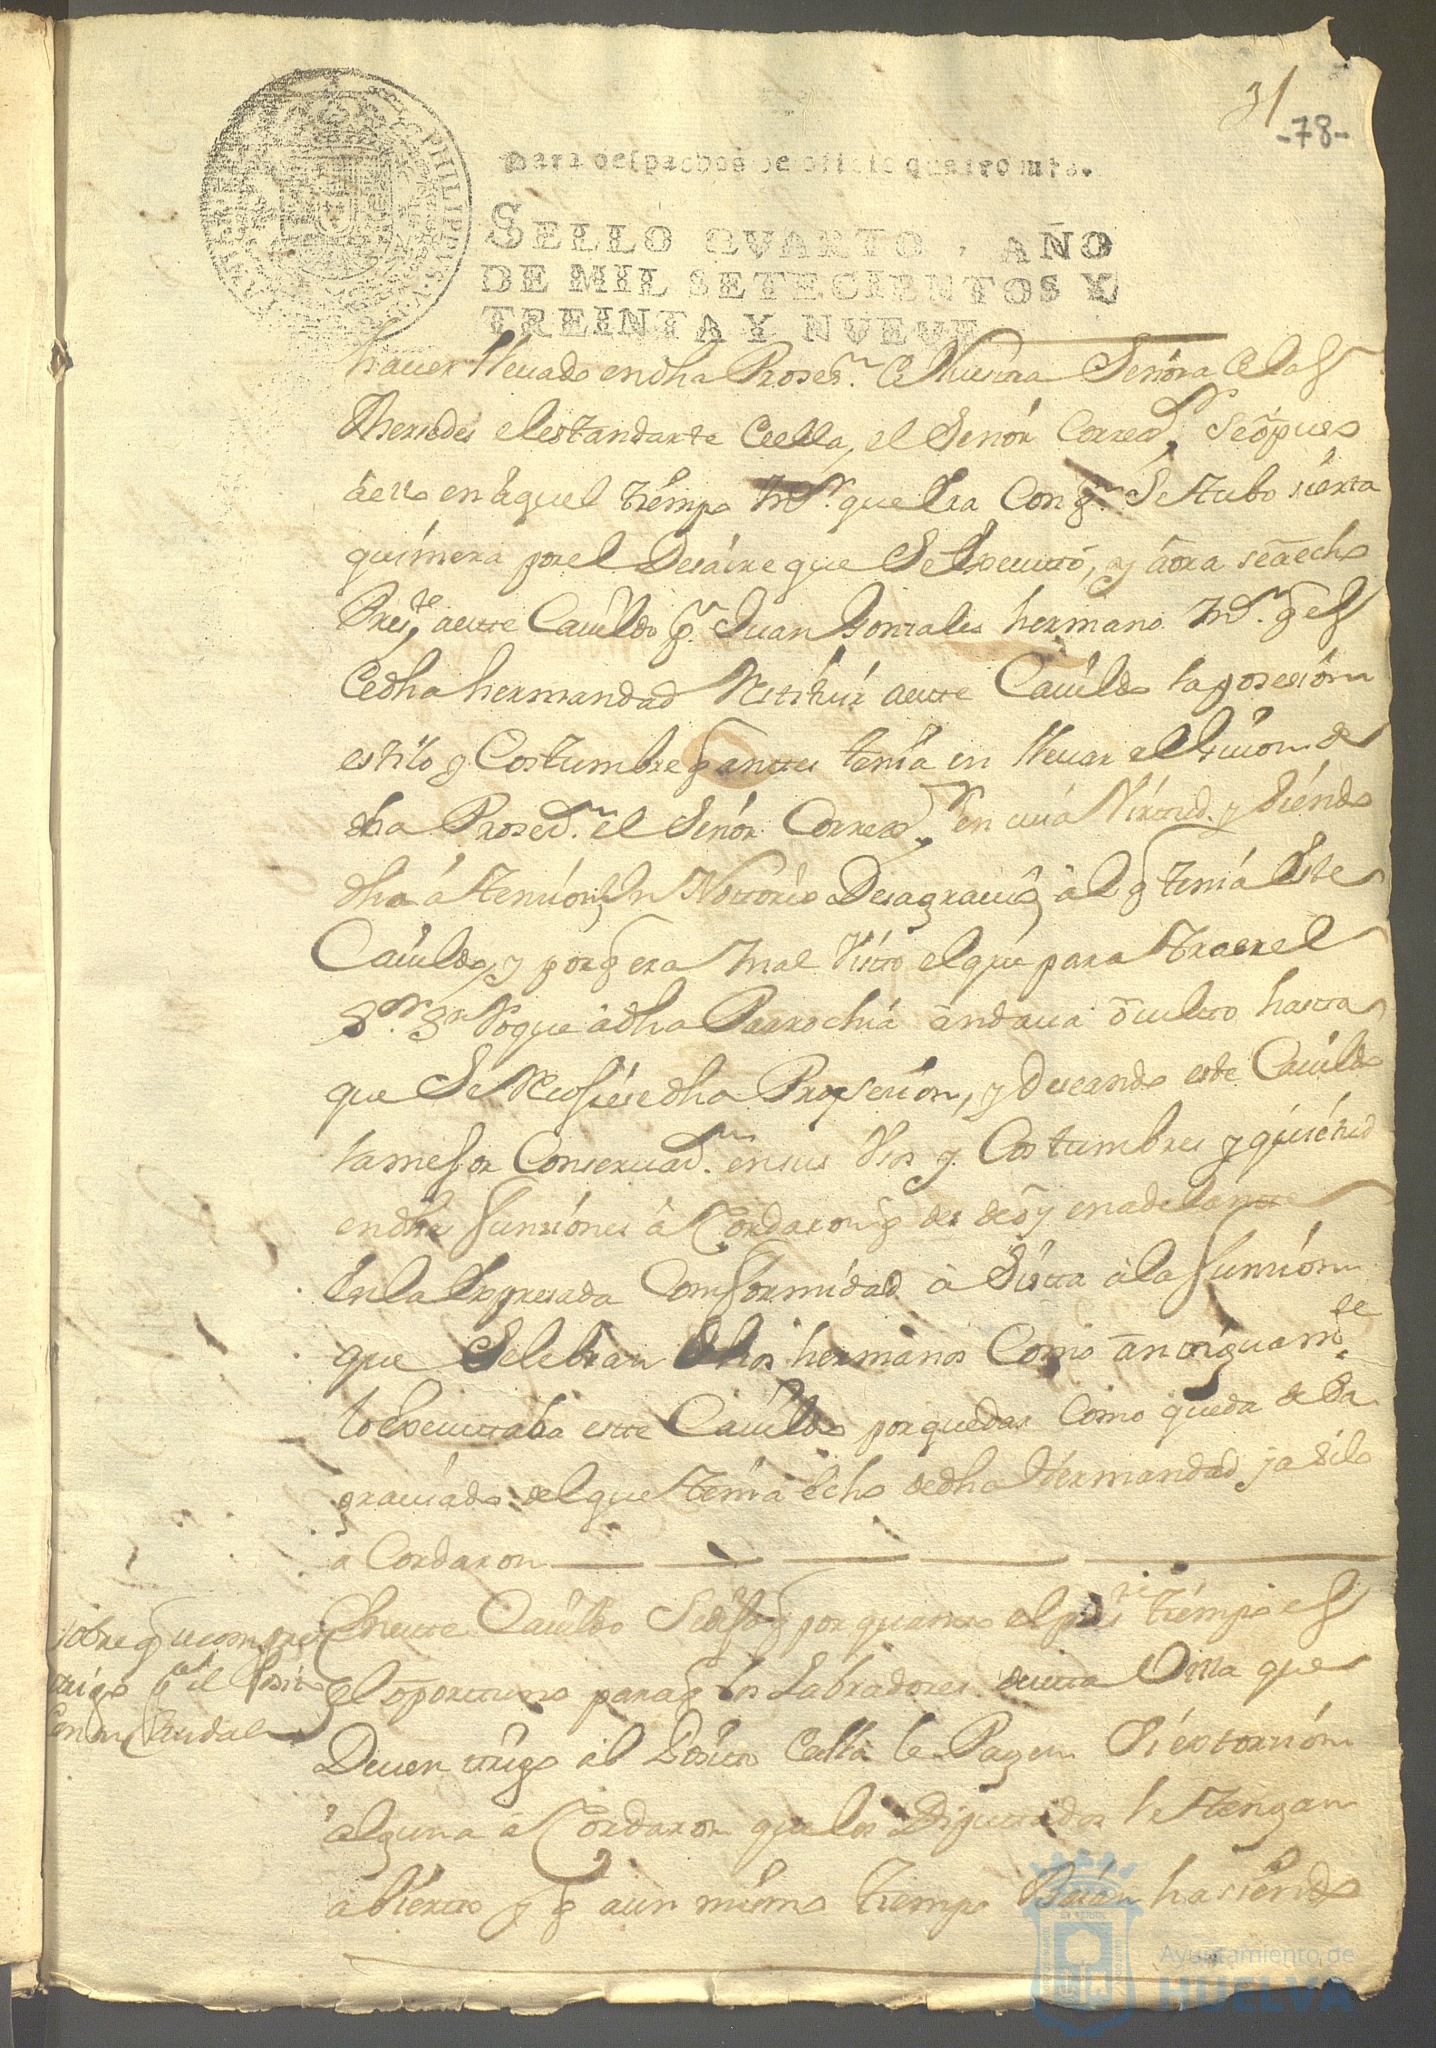 31
-78-
PHILIPPUS V
Para despachos de oficio quatro mrs.
SELLO QVARTO, AÑO
DE MIL SETECIENTOS Y
TREINTA Y NUEVE
haver llevado en dha Prosesn. de Nuestra Señora de las
el estandarte de ella, el Señor Corregr.
en aquel tiempo que era Se tubo sierta
quimera por el Desaire que Se executtó, y aora se a echo
Preste. a este Cavildo pr. Juan Gonzales hermano mr. q es
de dha hermandad Restituir a este Cavildo la posesión
estilo y Costumbre q antes tenía en llevar el Guion de
dha Prosecn. el Señor Corregr. en cuia Virtud, y siendo
dha atención Desagravio al q tenía este
Cavildo, y por q era mal Visto el que para traer el
Sr. Sn Roque a dha Parrochia andava oculto hasta
que Se dha Prosesion, y deseando este Cavildo
la mejor Conservacn. en sus Usos y Costumbres y quietud
en dhas funsiones acordaron q desde oy en adelante
en la expresada Conformidad a Sista a la funsion
que Selebran dhos hermanos Como antiguamte.
lo executtaba este Cavildo por quedar Como queda desa
graviado del que tenía echo de dha Hermandad, y asi lo
acordaron
En este Cavildo Se dijo q por quanto el preste tiempo es
el oportuno para q los Labradores de esta Villa que
Deven trigo al Posito de ella le Paguen Sin extorsion
alguna acordaron que los Diputados le tengan
abierto y q a un mismo tiempo Baian hasiendo
sobre q se compre
trigo pa. el Posito
con su Caudal
Ayuntamiento de
HUELVA